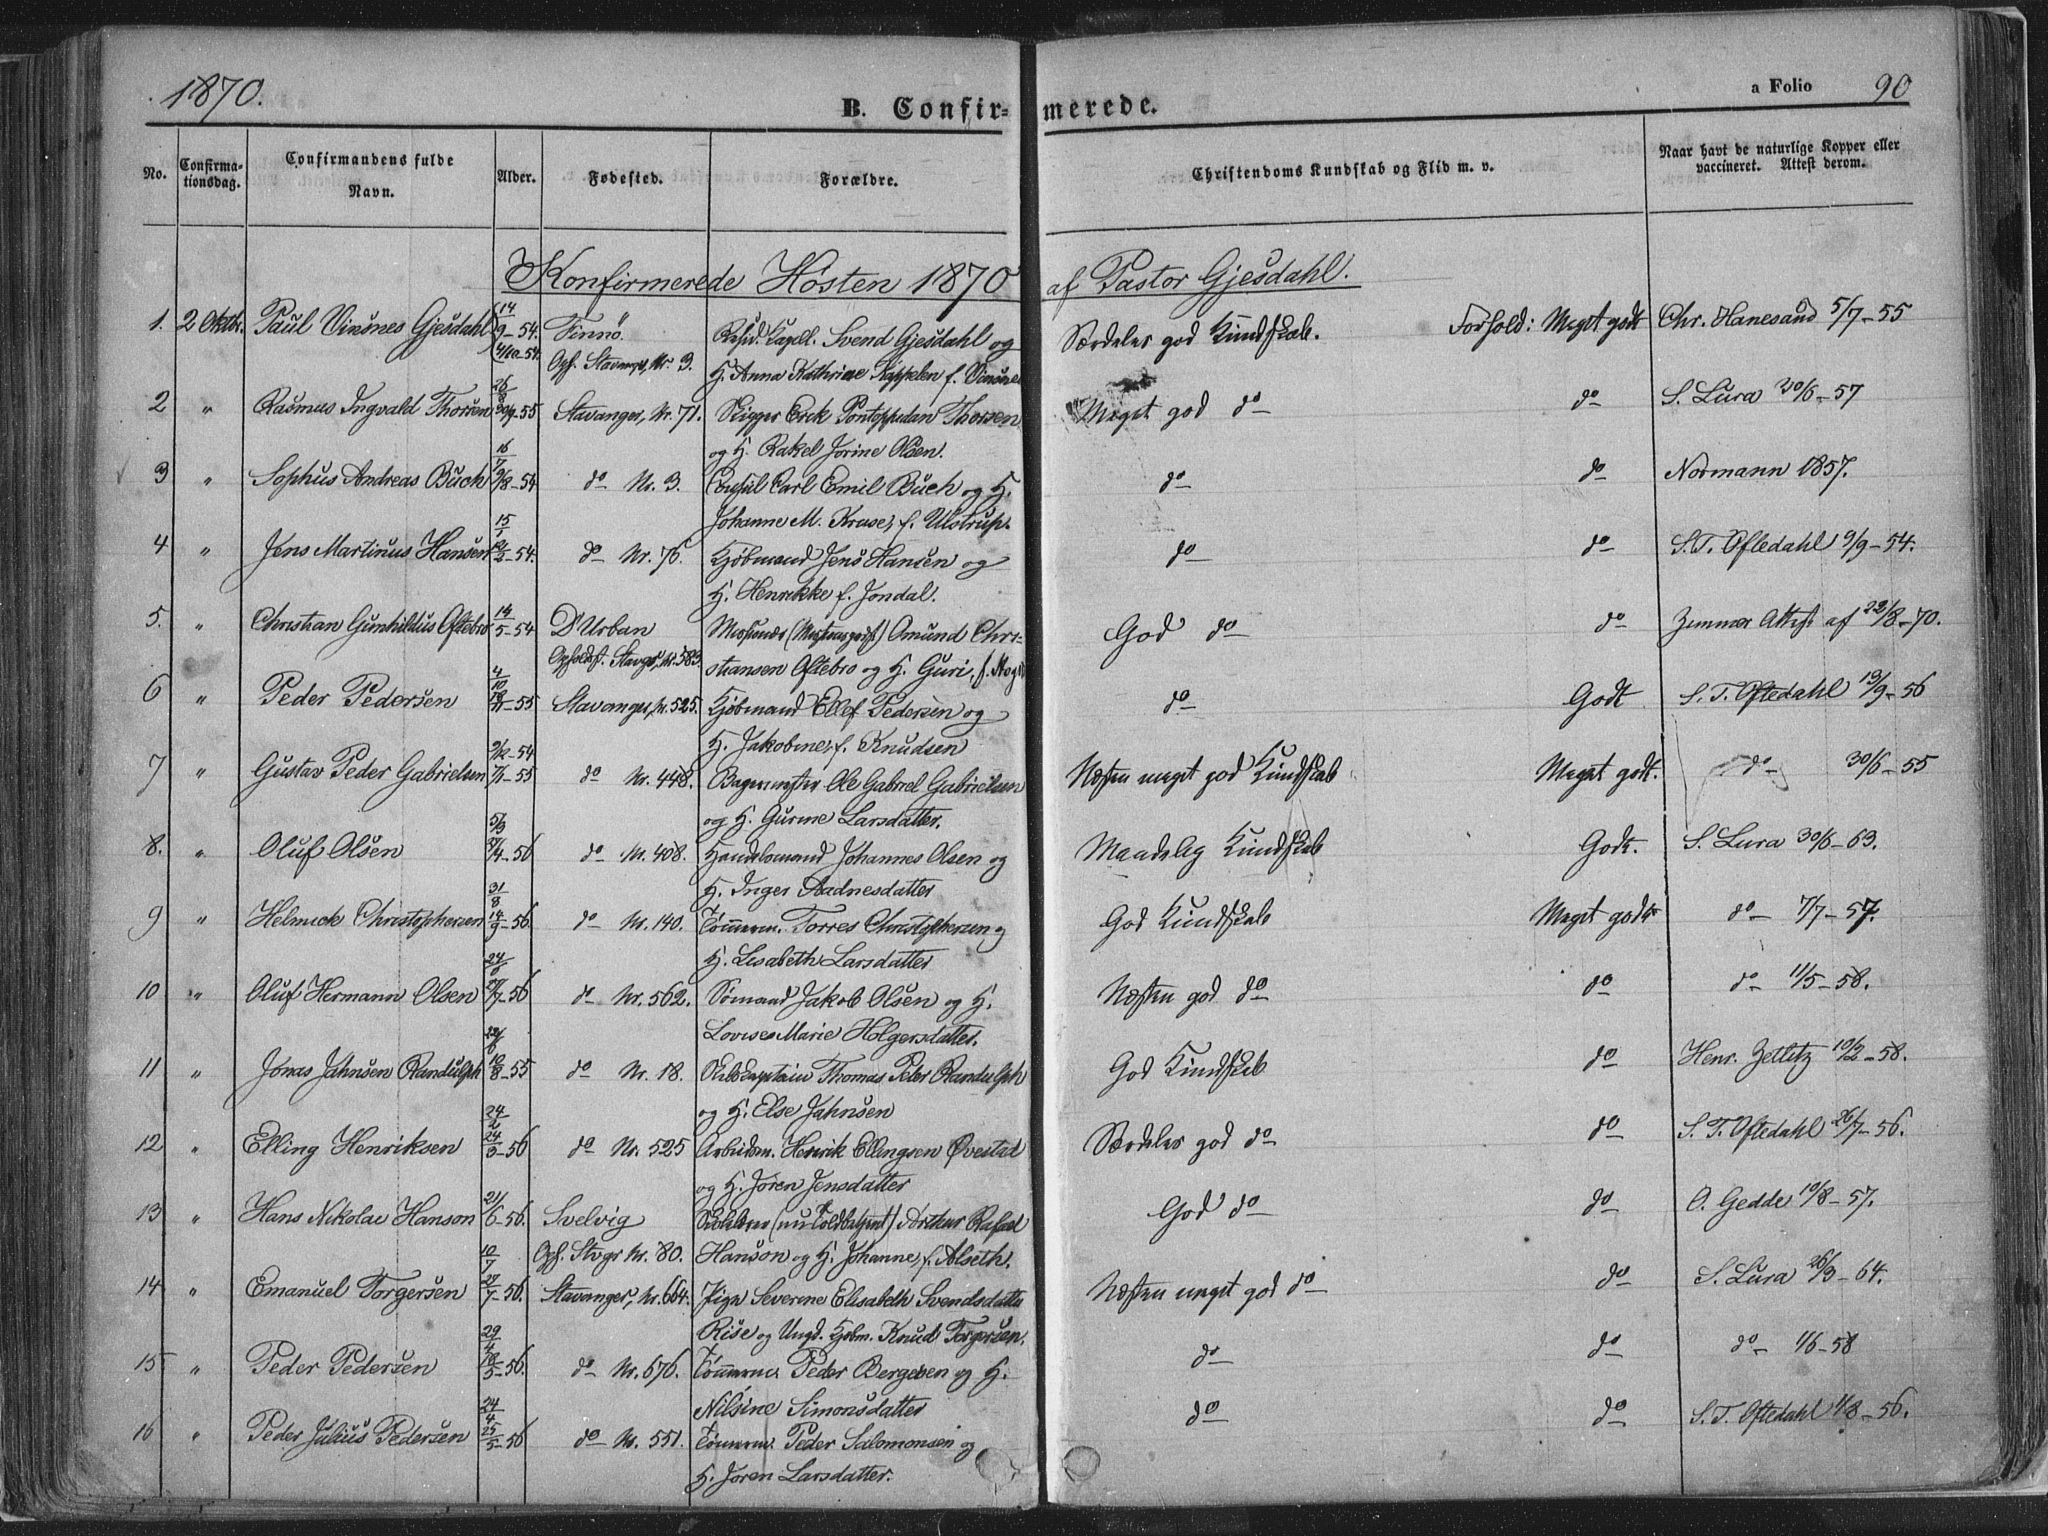 1870.
B. Confirmerede.
a Folio 90
No.
Confirmationsdag.
Confirmandens fulde Navn.
Alder.
Fødested.
Forældre.
Christendoms Kundskab og Flid m. v.
Naar havt de naturlige Kopper eller vaccineret. Attest derom.
Konfirmerede Hösten 1870 af Pastor Gjesdahl.
1. 2 Oktbr. Paul Vinsnes Gjesdahl 14/9-54. Finnö. Svend Gjesdahl og Særdeles god Kundskab. Forhold: Meget godt Chr. Hanesand 5/7-55
4/10 54. Oph. Stavanger, Nr. 3. H. Anna Kathrine Kappelen f. Vinsnes
26/8
2 " Rasmus Ingvald Thorsen 30/9-55 Stavanger, Nr. 71. Skipper Erik Pontoppidan Thorsen Meget god do do S. Lura 30/6-57
og H. Rakel Jorine Olsen.
16/7
3 " Sophus Andreas Buch 9/8-54 do Nr. 3. Consul Carl Emil Buch og H. do do Normann 1857.
Johanne M. Kruse, f. Ulstrup.
15/1
4 " Jens Martinus Hansen 12/2-54. do Nr. 76. Kjöbmand Jens Hansen og do do S. T. Oftedahl 9/9-54.
H. Henrikke f. Jondal.
5. " Christian Gunhildus Oftebro 14/5-54 D'Urban Missionær Omund Chri- God do do Zimmer Attest af 22/8-70.
Opholdst. Stavgr, Nr. 583. stiansen Oftebro og H. Guri, f.
4/10
6 " Peder Pedersen 55 Stavanger, Nr. 525. Kjöbmand Ellef Pedersen og do Godt S. T. Oftedahl 13/9-56
H. Jakobine, f. Knudsen
9/12-54
7 " Gustav Peder Gabrielsen 7/1-55 do Nr. 448. Bagermester Ole Gabriel Gabrielsen Næsten meget god Kundskab Meget godt. do 30/6-55
og H. Gurine Larsdatter.
5/3
8. " Oluf Olsen 27/4-56 do Nr. 408. Handelsmand Johannes Olsen og Maadelig Kundskab Godt. S. Lura 30/6-63.
H. Inger Aadnesdatter
31/8
9 " Helmick Christophersen 14/9-56. do Nr. 140. Tömmerm. Torres Christophersen og God Kundskab Meget godt do 7/7-57.
H. Lisabeth Larsdatter
24/6
10 " Oluf Hermann Olsen 7-56 do Nr. 562. Sömand Jakob Olsen og H. Næsten god do do do 11/5-58.
Lovise Marie Holgersdatter.
11 " Jonas Jahnsen Randulph 8-55 do Nr. 18. Skibskaptain Thomas Peter Randulph God Kundskab do Henr. Zetlitz 10/2-58.
og H. Else Jahnsen
24/2
12 " Elling Henriksen 24/3-56 do Nr. 525 Arbeidsm. Henrik Ellingsen Øvestad Særdeles god do do S. T. Oftedahl 26/7-56.
og H. Joren Jensdatter
13 " Hans Nikolai Hanson 21/6-56. Svelvig (nu Toldbetjent) Arthur Rafael God do do O. Gedde 10/8-57.
Oph. Stvgr Nr. 80. Hanson og H. Johanne, f. Alseth.
10/7
14 " Emanuel Torgersen 27/7-56. Stavanger, Nr. 664. Pige Severine Elisabeth Svendsdatter Næsten meget god do do S. Lura 26/3-64.
Rise og Ungk. Kjöbm. Knud Torgersen.
29/4
15 " Peder Pedersen 18/5-56. do Nr. 676. Tömmerm. Peder Bergesen og H. do do do 1/6-58
Nilsine Simonsdatter
24/4
16 " Peder Julius Pedersen 25/5-56 do Nr. 551. Tömmerm. Peder Salomonsen og do do S. T. Oftedahl 4/8-56.
H. Joren Larsdatter.